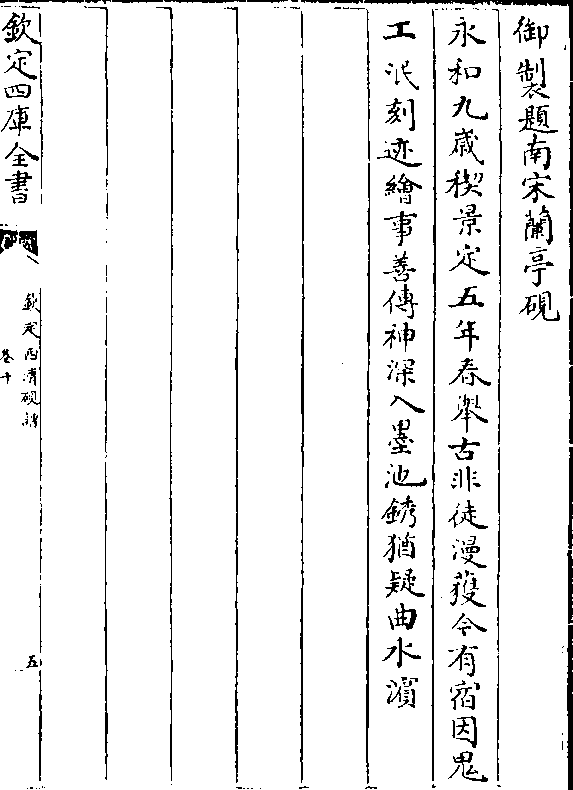 御製題南宋蘭亭硯
永和九歲稧景定五年春舉古非徒漫獲今有宿因鬼
工泯刻迹繪事善傳神深入墨池銹猶疑曲水濵
欽定四庫全書
欽定西清硯譜
卷十
五